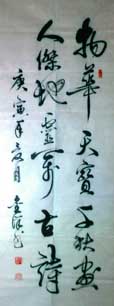 物華天寶千秋畫
人傑地靈萬古詩
庚寅年